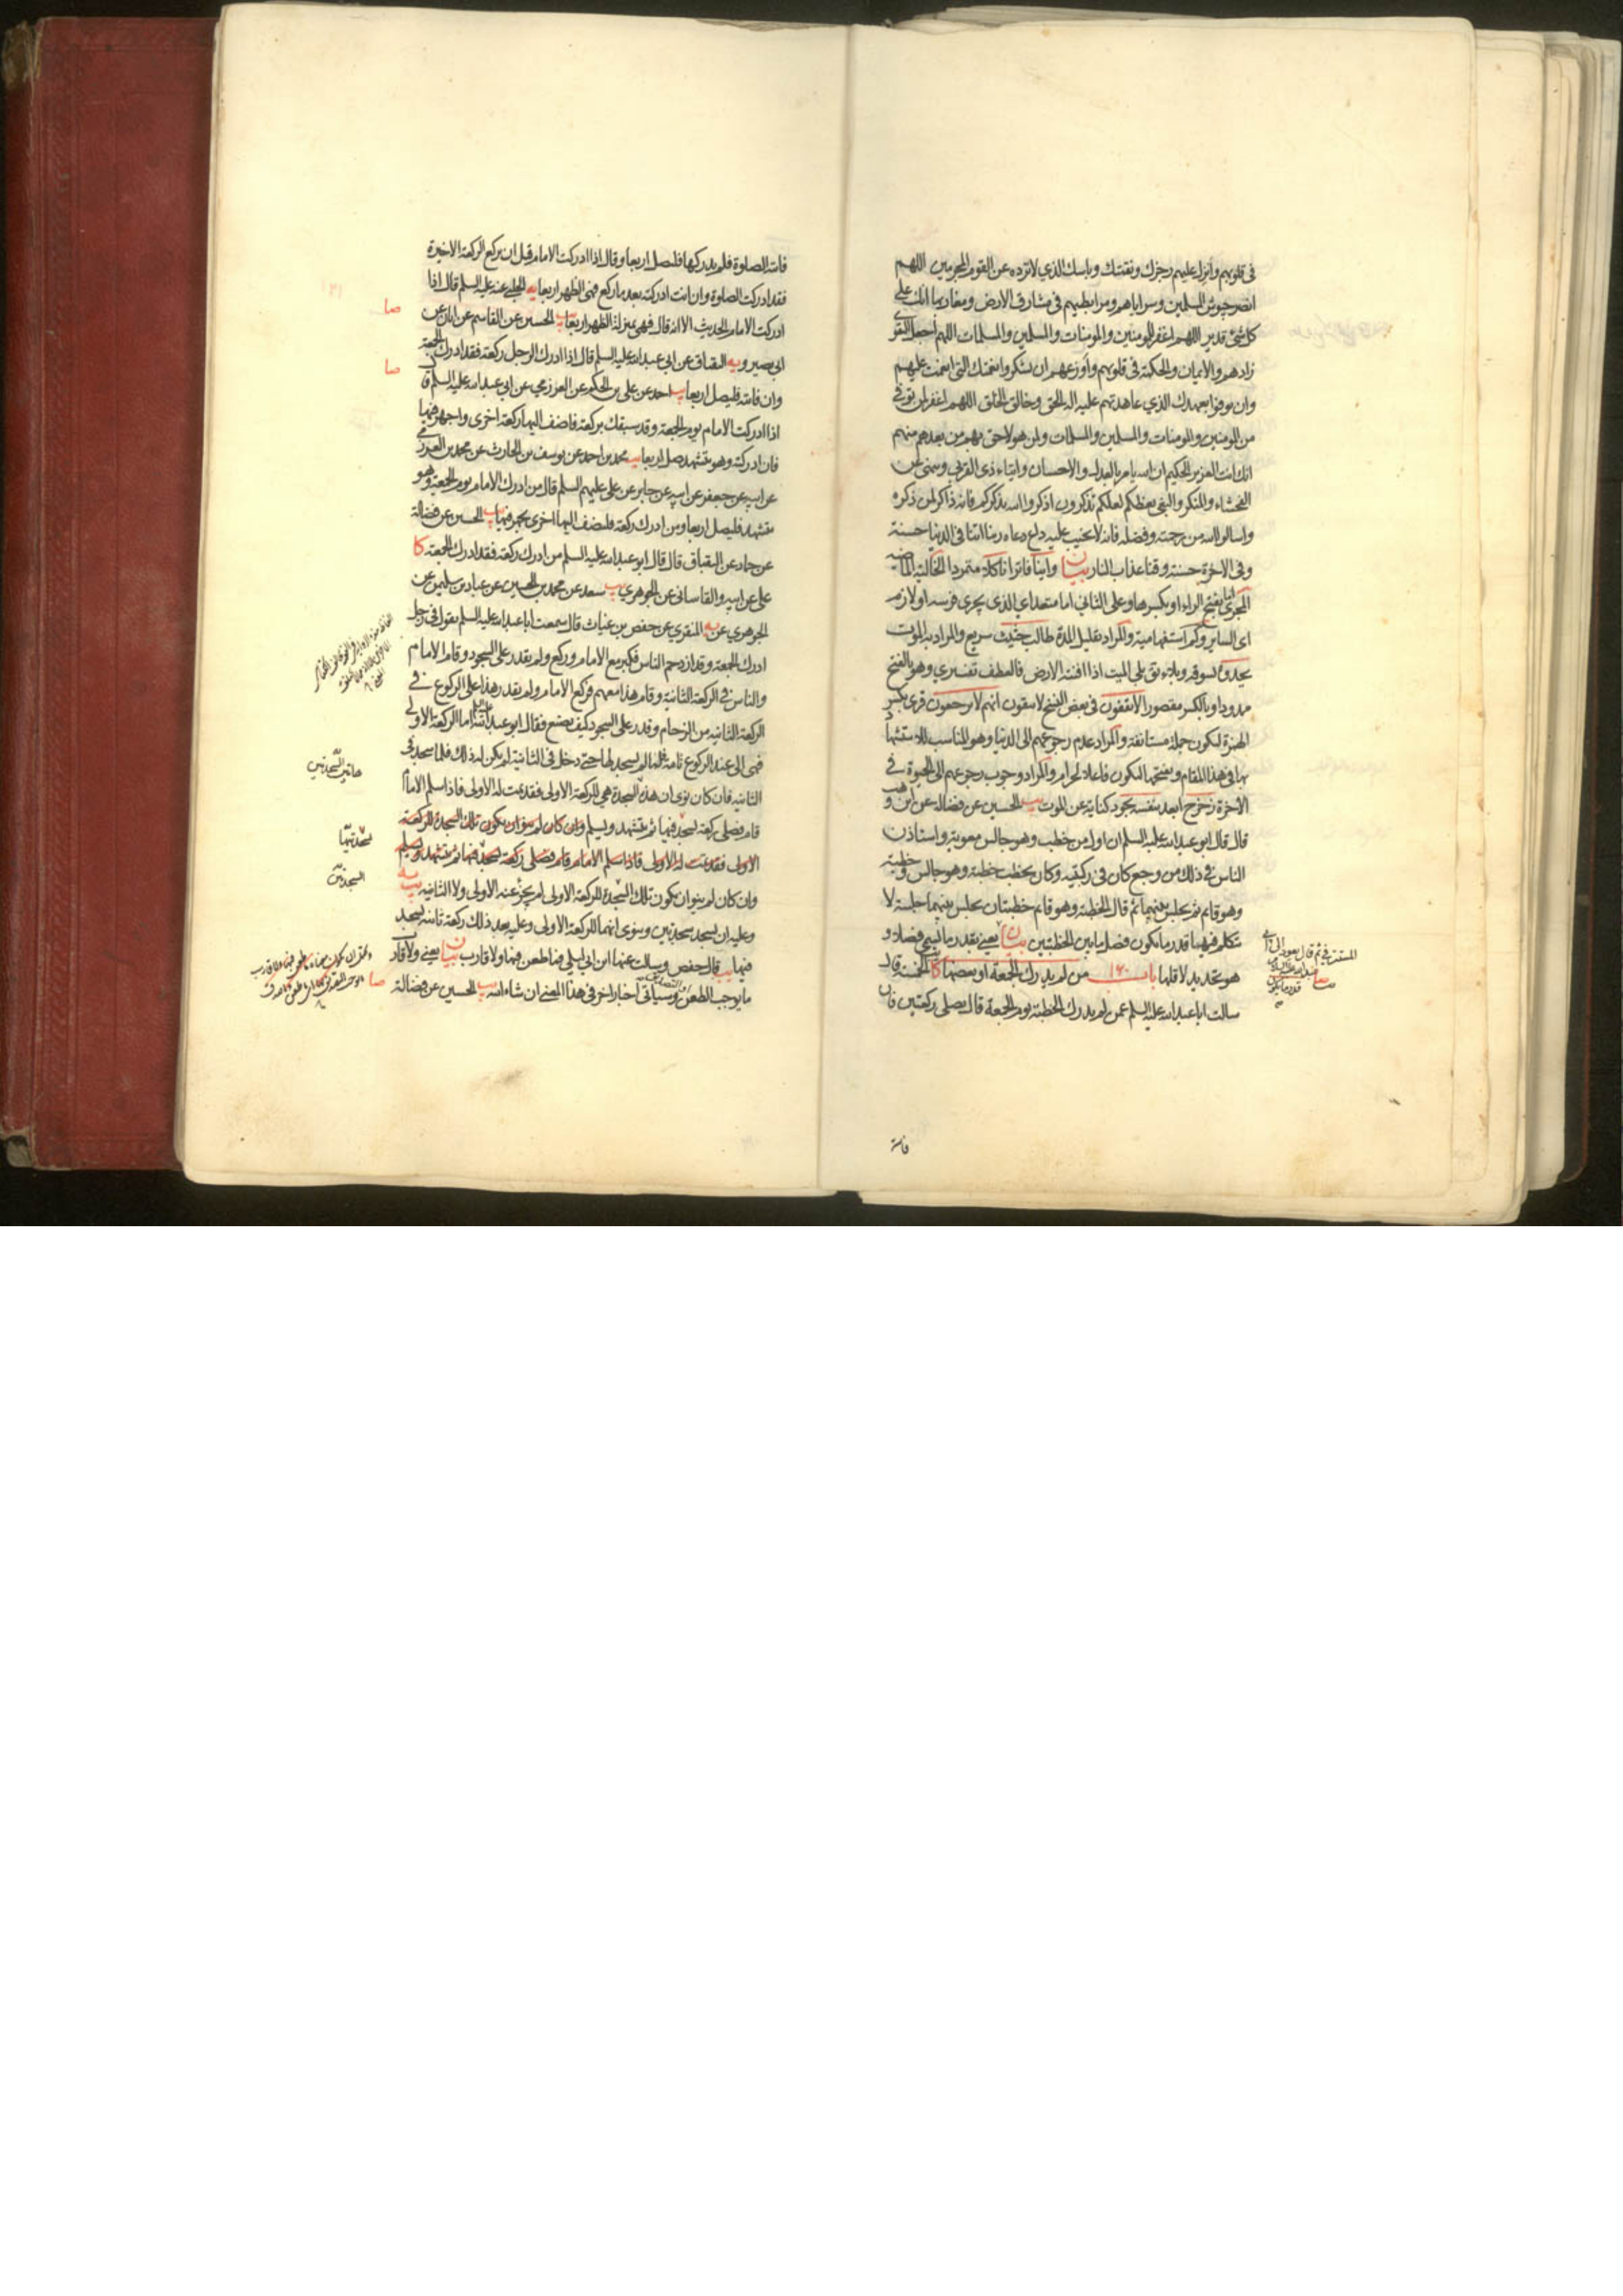 في قلوبهم وأنزل عليهم رجزك ونقمتك وباسك الذي لا ترده عن القوم المجرمين اللهم
انصر جيوش المسلمين وسراياهم ومرابطيهم في مشارق الارض ومغاربها انك على
كل شئ قدير اللهم اغفر للمومنين والمومنات والمسلمين والمسلمات اللهم اجعل التقوى
زادهم والايمان والحكمة في قلوبهم وأوزعهم ان يشكروا نعمتك التي انعمت عليهم
وان يوفوا بعهدك الذي عاهدتهم عليه اله الحق وخالق الخلق اللهم اغفر لمن توفي
من المومنين والمومنات والمسلمين والمسلمات ولمن هو لاحق بهم من بعدهم منهم
انك انت العزيز الحكيم ان الله يامر بالعدل والاحسان وايتاء ذي القربى وينهى عن
الفحشاء والمنكر والبغي يعظكم لعلكم تذكرون اذكروا الله يذكركم فانه ذاكر لمن ذكره
واسالوا الله من رحمته وفضله فانه لا يخيب عليه داع دعاه ربنا اتنا في الدنيا حسنة
وفي الاخرة حسنة وقنا عذاب النار بيان وانيا فاترا ناكلا متمردا الخالية الماضية
المجرى اما بفتح الراء او بكسرها وعلى الثاني اما متعد اي الذي يجري فرسه او لازم
اى الساير وكم استفهامية والمراد تقليل المدة طالب حثيث سريع والمراد به الموت
يحدو يسوقه وبلاء في بلى الميت اذا افنته الارض فالعطف تفسيري وهو بالفتح
ممدودا وبالكسر مقصورا لا يبقون في بعض النسخ لا يبقون انهم لا يرجعون قرئ بكسر
الهمزة ليكون جملة مستانفة والمراد عدم رجوعهم الى الدنيا وهو المناسب للاستشهاد
بها في هذا المقام وبفتحها ليكون فاعلا لحرام والمراد وجوب رجوعهم الى الحيوة في
الآخرة زحزح ابعد بنفسه يجود كناية عن الموت يب الحسين عن فضالة عن ابن وهب
قال قال ابو عبدالله عليه السلم ان اول من خطب وهو جالس معوية واستاذن
الناس في ذلك من وجع كان في ركبتيه وكان يخطب خطبة وهو جالس وخطبة
وهو قائم ثم يجلس بينهما ثم قال الخطبة وهو قائم خطبتان يجلس بينهما جلسة لا
يتكلم فيها قدر ما يكون فصل ما بين الخطبتين بيان يعني بقدر ما ليسمى فصلا و
هو تحديد لاقلها باب ١٦٠ من لم يدرك الجمعة او بعضها كا الخمسة قال
سالت ابا عبدالله عليه السلم عمن لم يدرك الخطبة يوم الجمعة قال يصلى ركعتين فان
فاتته
فاتته الصلوة فلم يدركها فليصل اربعا وقال اذا ادركت الامام قبل ان يركع الركعة الاخيرة
فقد ادركت الصلوة وان انت ادركته بعد ما ركع فهي الظهر اربعا يه الحلبي عنه عليه السلم قال اذا
ادركت الامام الحديث الا انه قال فهي بمنزلة الظهر اربعا يب الحسين عن القاسم عن ابان عن
ابي بصير ويه البقباق عن ابي عبدالله عليه السلم قال اذا ادرك الرجل ركعة فقد ادرك الجمعة
وان فاتته فليصل اربعا يب احمد عن علي بن الحكم عن العرزمي عن ابي عبدالله عليه السلم قال
اذا ادركت الامام يوم الجمعة وقد سبقك بركعة فاضف اليها ركعة اخرى واجهر فيها
فان ادركته وهو يتشهد صل اربعا يب محمد بن احمد عن يوسف بن الحارث عن محمد بن العرزمي
عن ابيه عن جعفر عن ابيه عن جابر عن علي عليهم السلم قال من ادرك الامام يوم الجمعة وهو
يتشهد فليصل اربعا ومن ادرك ركعة فليضف اليها اخرى يجهر فيها يب الحسين عن فضالة
عن حماد عن البقباق قال قال ابو عبدالله عليه السلم من ادرك ركعة فقد ادرك الجمعة كا
علي عن ابيه والقاساني عن الجوهري يب سعد عن محمد بن الحسين عن عباد بن سليمن عن
الجوهري عن يه المنقري عن حفص بن غياث قال سمعت ابا عبدالله عليه السلم يقول في رجل
ادرك الجمعة وقد ازدحم الناس فكبر مع الامام وركع ولم يقدر على السجود وقام الامام
والناس في الركعة الثانية وقام هذا معهم فركع الامام ولم يقدر هذا على الركوع في
الركعة الثانية من الزحام وقدر على السجود كيف يصنع فقال ابو عبدالله اما الركعة الاولى
فهي الى عند الركوع تامة فلما لم يسجد لها حتى دخل في الثانية لم يكن له ذلك فلما سجد في
الثانية فان كان نوى ان هذه السجدة هي للركعة الاولى فقد تمت له الاولى فاذا سلم الامام
قام فصلى ركعة يسجد فيها ثم يتشهد ويسلم وان كان لم ينو ان يكون تلك السجدة للركعة
الاولى فقد تمت له الاولى فاذا سلم الامام قام فصلى ركعة يسجد فيها ثم يتشهد ويسلم
وان كان لم ينو ان يكون تلك السجدة للركعة الاولى لم يجز عنه الاولى ولا الثانية يب يه
وعليه ان يسجد سجدتين وينوى انهما للركعة الاولى وعليه بعد ذلك ركعة تامة يسجد
فيها يب قال حفص وسالت عنها ابن ابي ليلى فما طعن فيها ولا قارب بيان يعني ولا قارب
ما يوجب الطعن وسياتي اخبار اخر في هذا المعنى ان شاء الله يب الحسين عن فضالة
صا
صا
هاتين السجدتين
السجدتين
صا